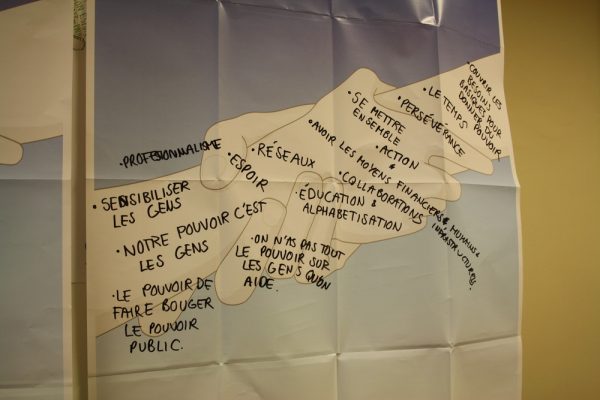 • PROFESSIONNALISME
• SENSIBILISER
LES GENS
• NOTRE POUVOIR C'EST
LES GENS
• LE POUVOIR DE
FAIRE BOUGER
LE POUVOIR
PUBLIC.
• ESPOIR
• RÉSEAUX
• ON N'AS PAS TOUT
LE POUVOIR SUR
LES GENS QU'ON
AIDE.
• ÉDUCATION &
ALPHABETISATION
• COLLABORATIONS
• AVOIR LES MOYENS FINANCIERS & HUMAINS &
INFRASTRUCTURELS.
• ACTION
• SE METTRE
ENSEMBLE
• PERSÉVÉRANCE
• LE TEMPS
• COUVRIR LES
BESOINS
BASIQUES POUR
DONNER DU
POUVOIR